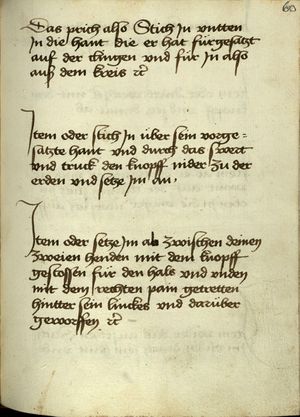 60
Das prich also Stich In vnttен
In die hant die er hat fürgesatzt
auff der clingen und für In also
auß dem kreis ꝛc
Item oder stich in über sein vorge=
satzte hant und durch das swert
und truck den knopff nider zu der
erden und setze im an.
Item oder setze Im ab zwischen deinen
zweien henden mit dem knopff
gestossen für den hals und unden
mit dem rechten pain getretten
hintter sein linckes und darüber
geworffen ꝛc